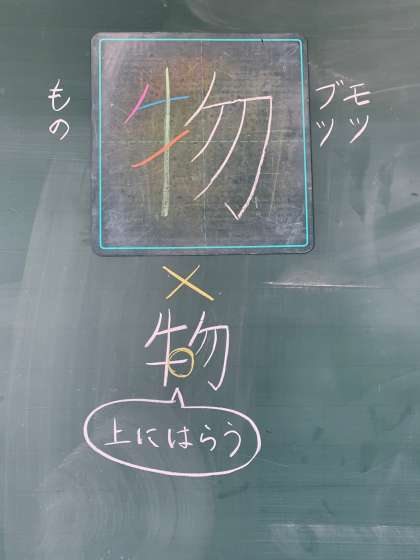 物
モツ
ブツ
もの
×
物
上にはらう